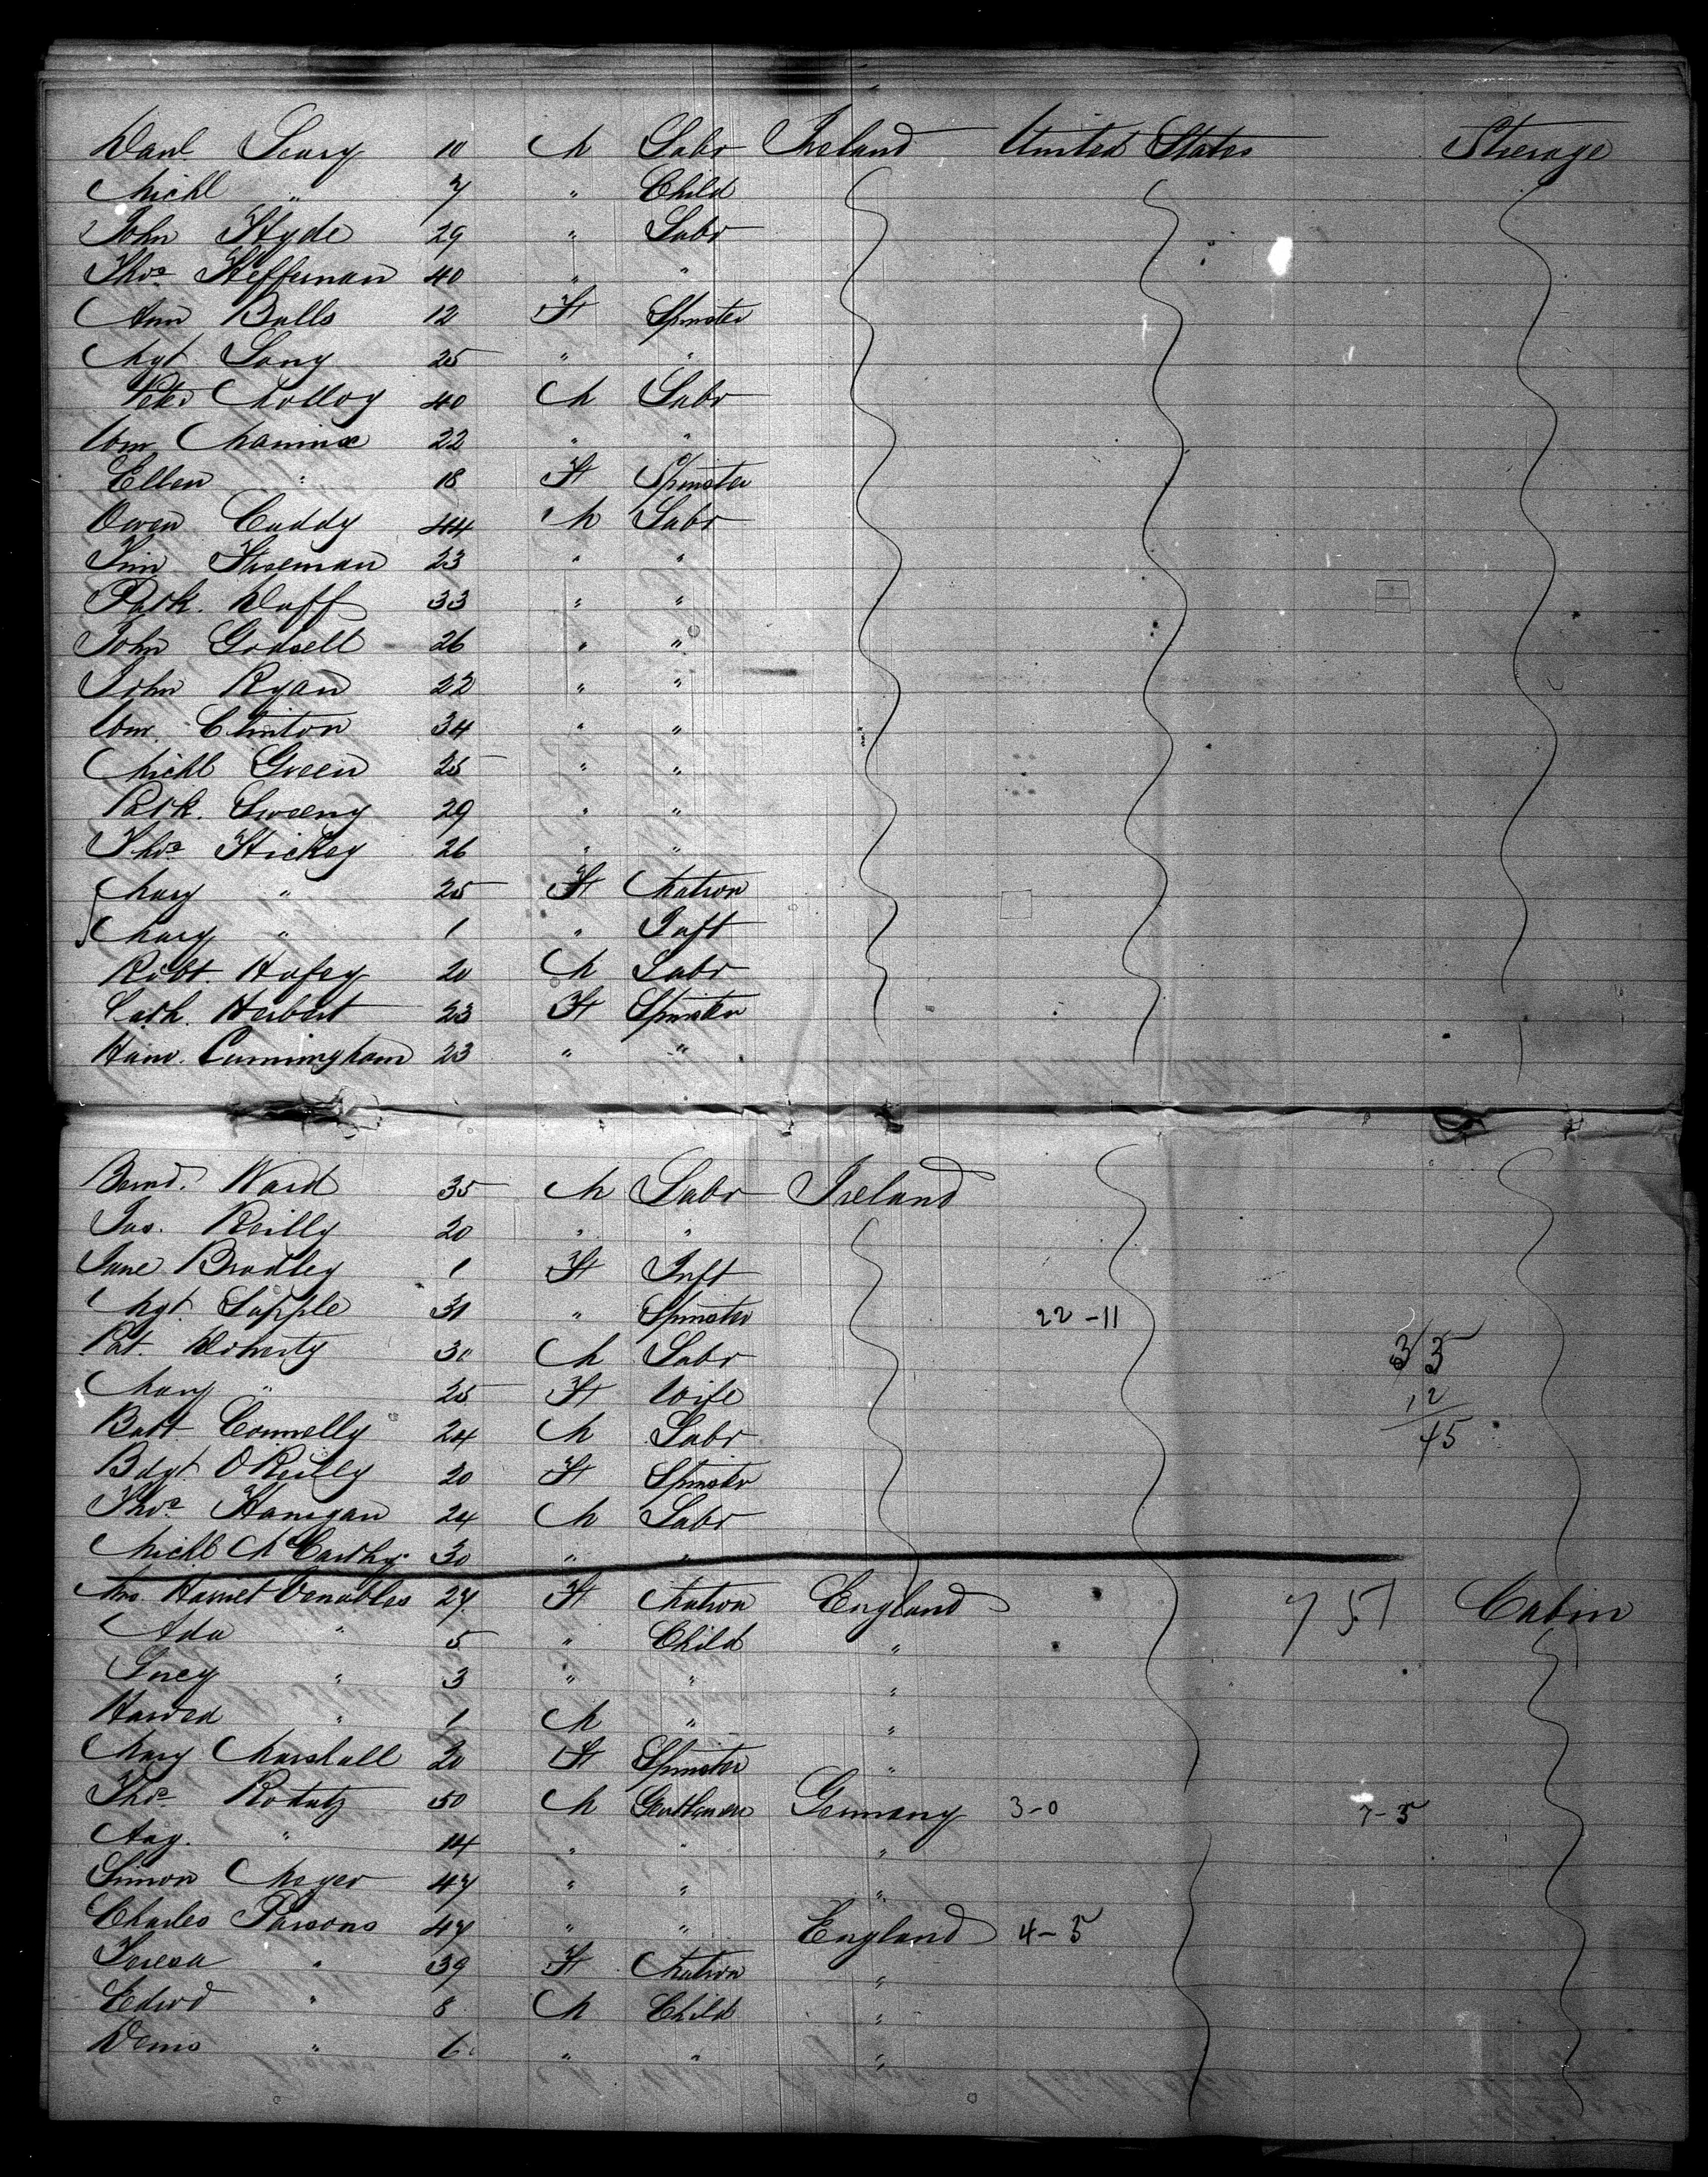 Danl Leary 10 M Labr Ireland United States Steerage
Michl " 7 " Child
John Hyde 29 " Labr
Thos Heffernan 40 " "
Ann Balls 12 F Spinster
Mgt Long 25 " "
Peter Molloy 40 M Labr
Wm 22 " "
Ellen " 18 F Spinster
Owen Cuddy 44 M Labr
Tim 23 " "
Patk. Duff 33 " "
John Godsell 26 " "
John Ryan 22 " "
Wm. Clinton 34 " "
Michl Green 25 " "
Patk. Sweeny 29 " "
Thos Hickey 26 " "
Mary " 25 F Matron
Mary " 1 " Inft
Robt. 20 M Labr
Cath. Herbert 23 F Spinster
Hanr. Cunningham 23 " "
Bernd. Ward 35 M Labr Ireland
Jas. Reilly 20 " "
Jane Bradley 1 F Inft
Mgt. Supple 31 " Spinster 22-11
Pat. Doherty 30 M Labr 35
Mary " 25 F Wife 12
Batt Connelly 24 M Labr 45
Bdgt O'Reilly 20 F Spinster
Thos Hanigan 24 M Labr
Michl McCarthy 30 " "
Mrs. Harriet Venables 27 F Matron England 757 Cabin
Ada " 5 " Child "
Lucy " 3 " " "
" 1 M " "
Mary Marshall 20 F Spinster "
Thos 50 M Gentleman Germany 3-0 7-5
Aug. " 14 " " "
Simon Meyer 47 " " "
Charles Parsons 47 " " England 4-5
Teresa " 39 F Matron "
Edwd " 8 M Child "
Denis " 6 " " "